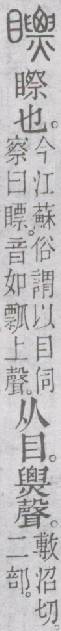 也。
今江蘇俗謂以目伺
察曰瞟。音如瓢上聲。
从目。聲。
敷沼切。
二部。